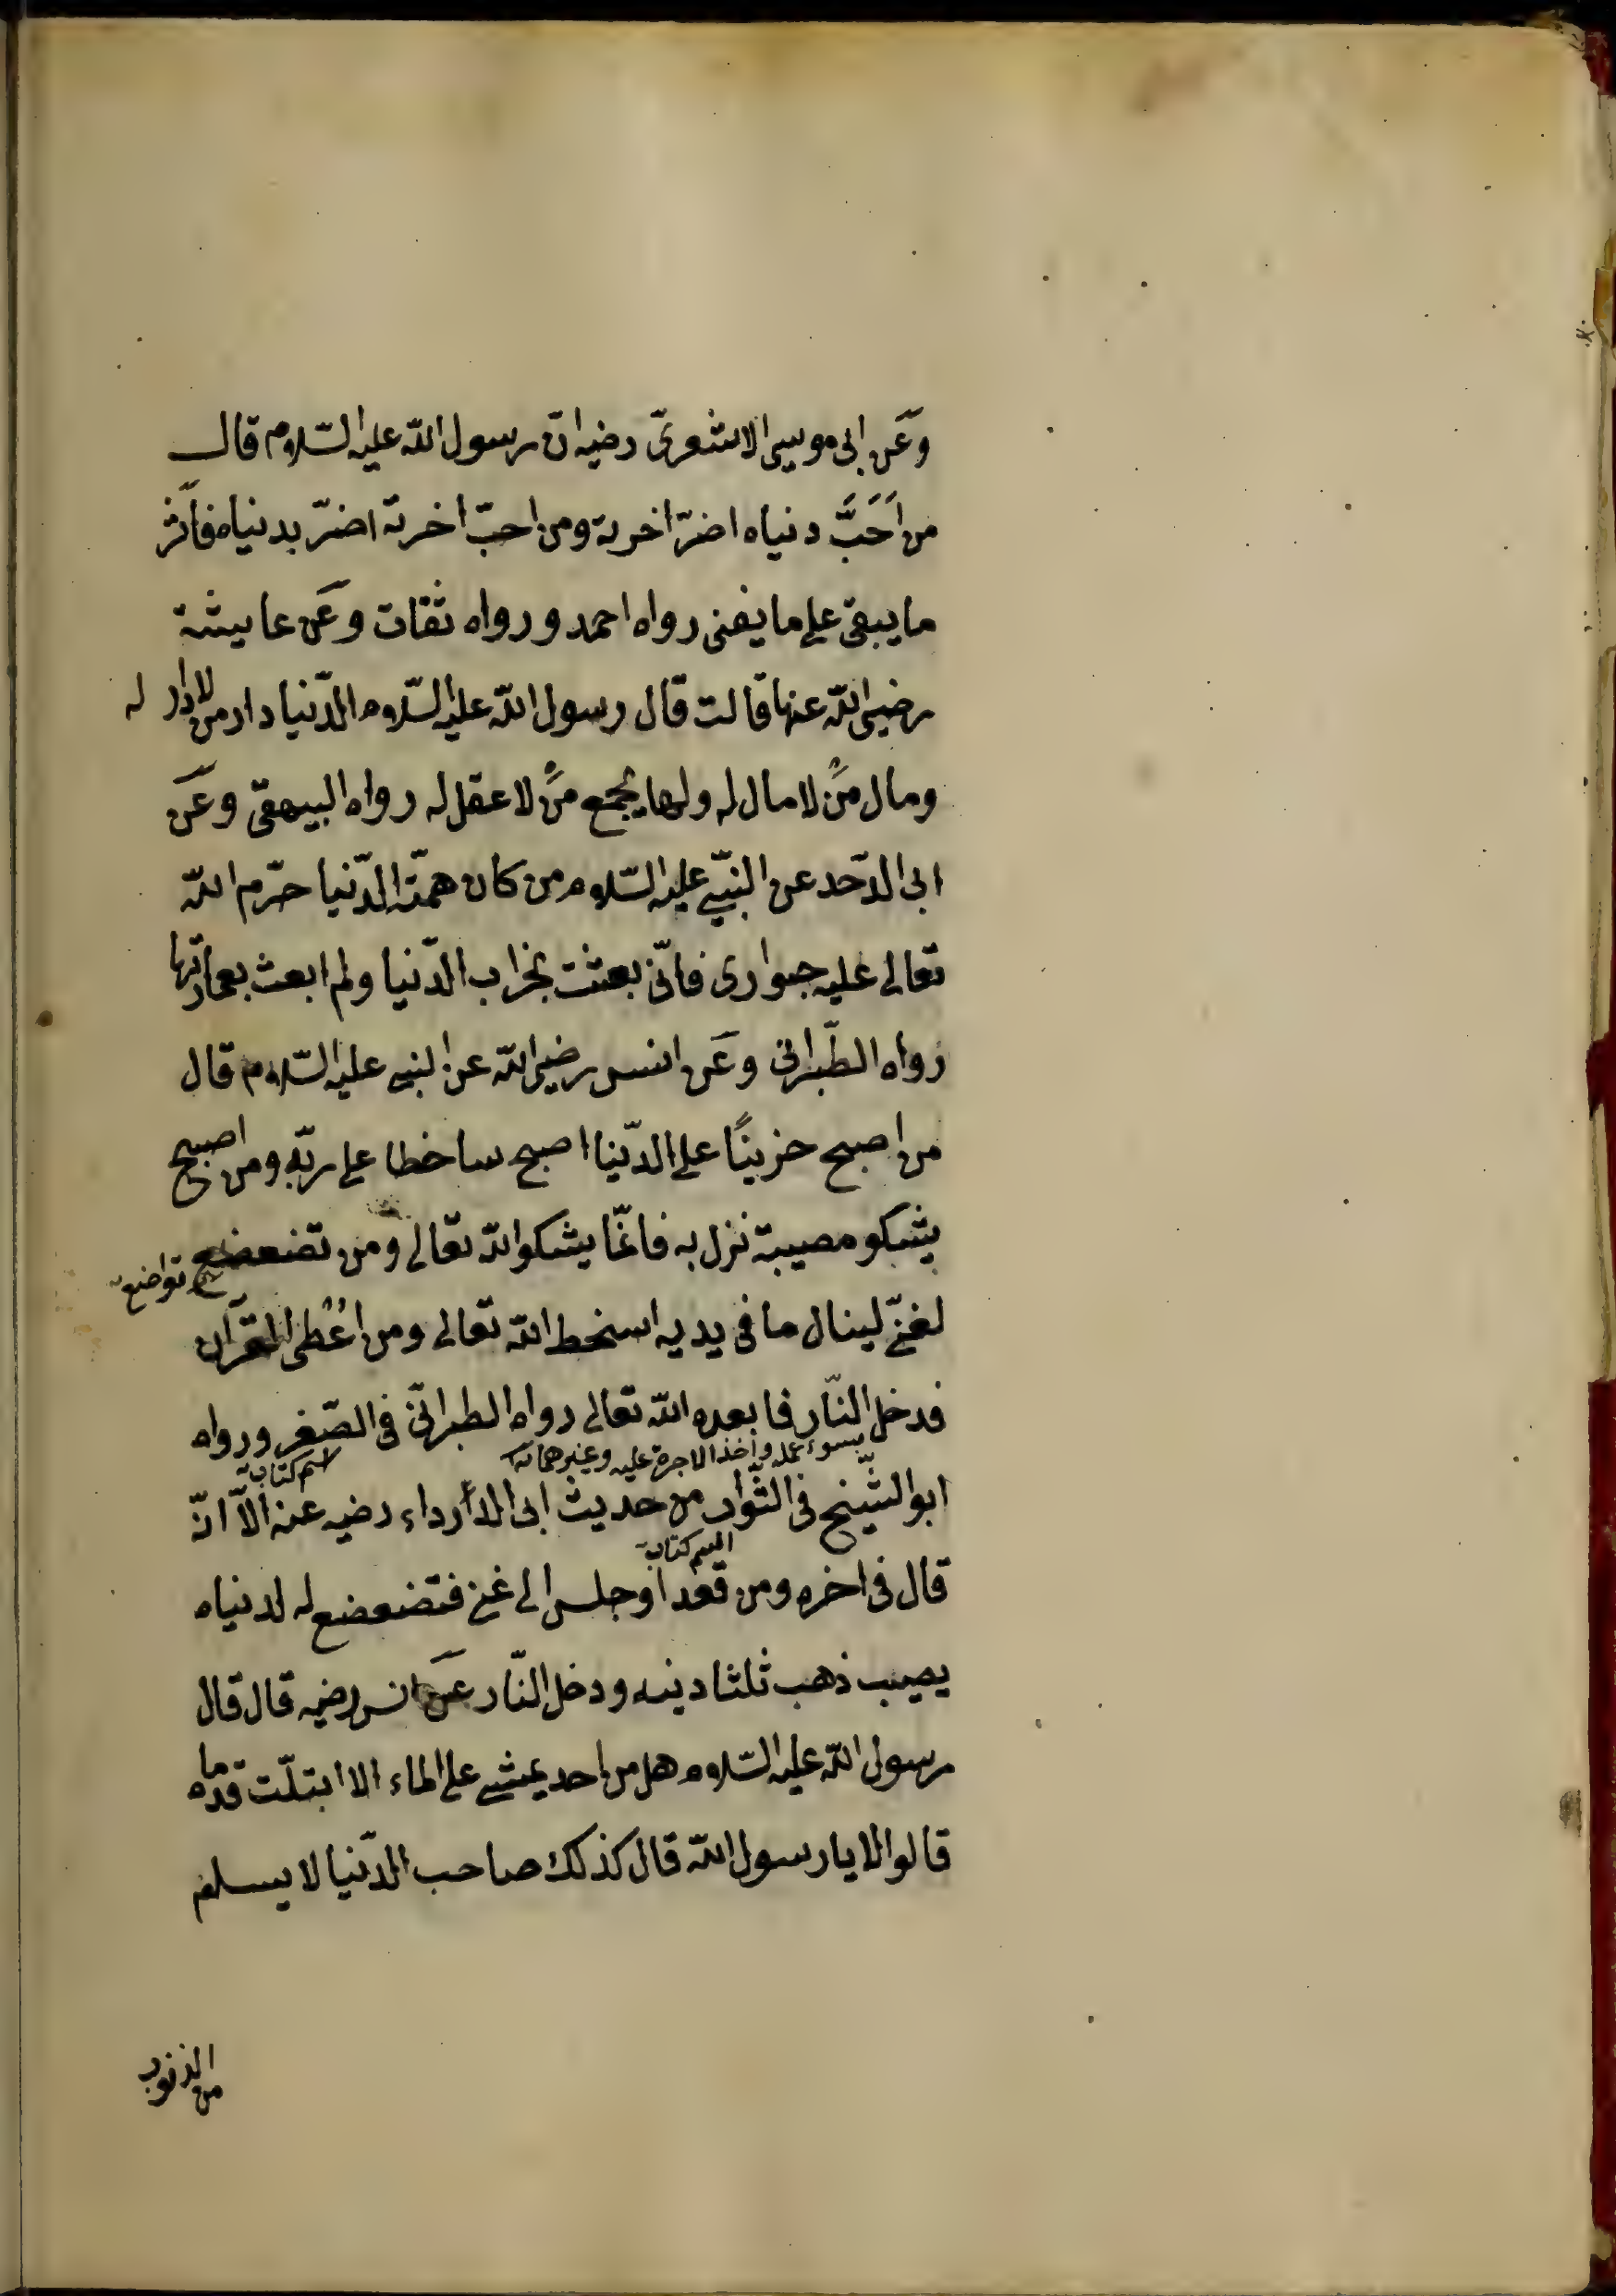 وعَن ابى موسى الاشعرىّ رضيه انّ رسول اللّه عليه السّلام قال
من اَحَبَّ دنياه اضرّ اخرته ومن احبّ اخرته اضرّ بدنياه فآثر
ما يبقى على ما يفنى رواه احمد ورواه ثقات وعَن عايشة
رضى اللّه عنها قالت قال رسول اللّه عليه السّلام الدّنيا دار من لا دار له
ومال مَن لا مال له ولها يجمع مَن لا عقل له رواه البيهقى وعَن
ابى الدّحد عن النبّى عليه السّلام من كان همّته الدّنيا حرّم اللّه
تعالى عليه جوارى فانّى بعثت بخراب الدّنيا ولم ابعث بعمارتها
رواه الطّبرانى وعَن انس رضى اللّه عن النبى عليه السّلام قال
من اصبح حزينًا على الدّنيا اصبح ساخطا على ربّه ومن اصبح
يشكو مصيبة نزل به فانمّا يشكو اللّه تعالى ومن تضعضع
تواضع
لغنىّ لينال ما فى يديه اسخط اللّه تعالى ومن اُعُطى القرآن
فدخل النّار فابعده اللّه تعالى رواه الطبرانىّ فى الصّغير ورواه
بسوء عمله واخذ الاجرة عليه وغيرهما
اسم كتاب
ابو الشّيخ فى الثّواب من حديث ابى الدّرداء رضيه عنه الاّ انّه
اسم كتاب
قال فى اخره ومن قعد او جلس الى غنى فتضعضع له لدنياه
يصيب ذهب ثلثا دينه ودخل النّار عَن انس رضيه قال قال
رسول اللّه عليه السّلام هل من احد يمشى على الماء الا ابتلّت قدماه
قالوا لا يا رسول اللّه قال كذلك صاحب الدّنيا لا يسلم
من الذنوب